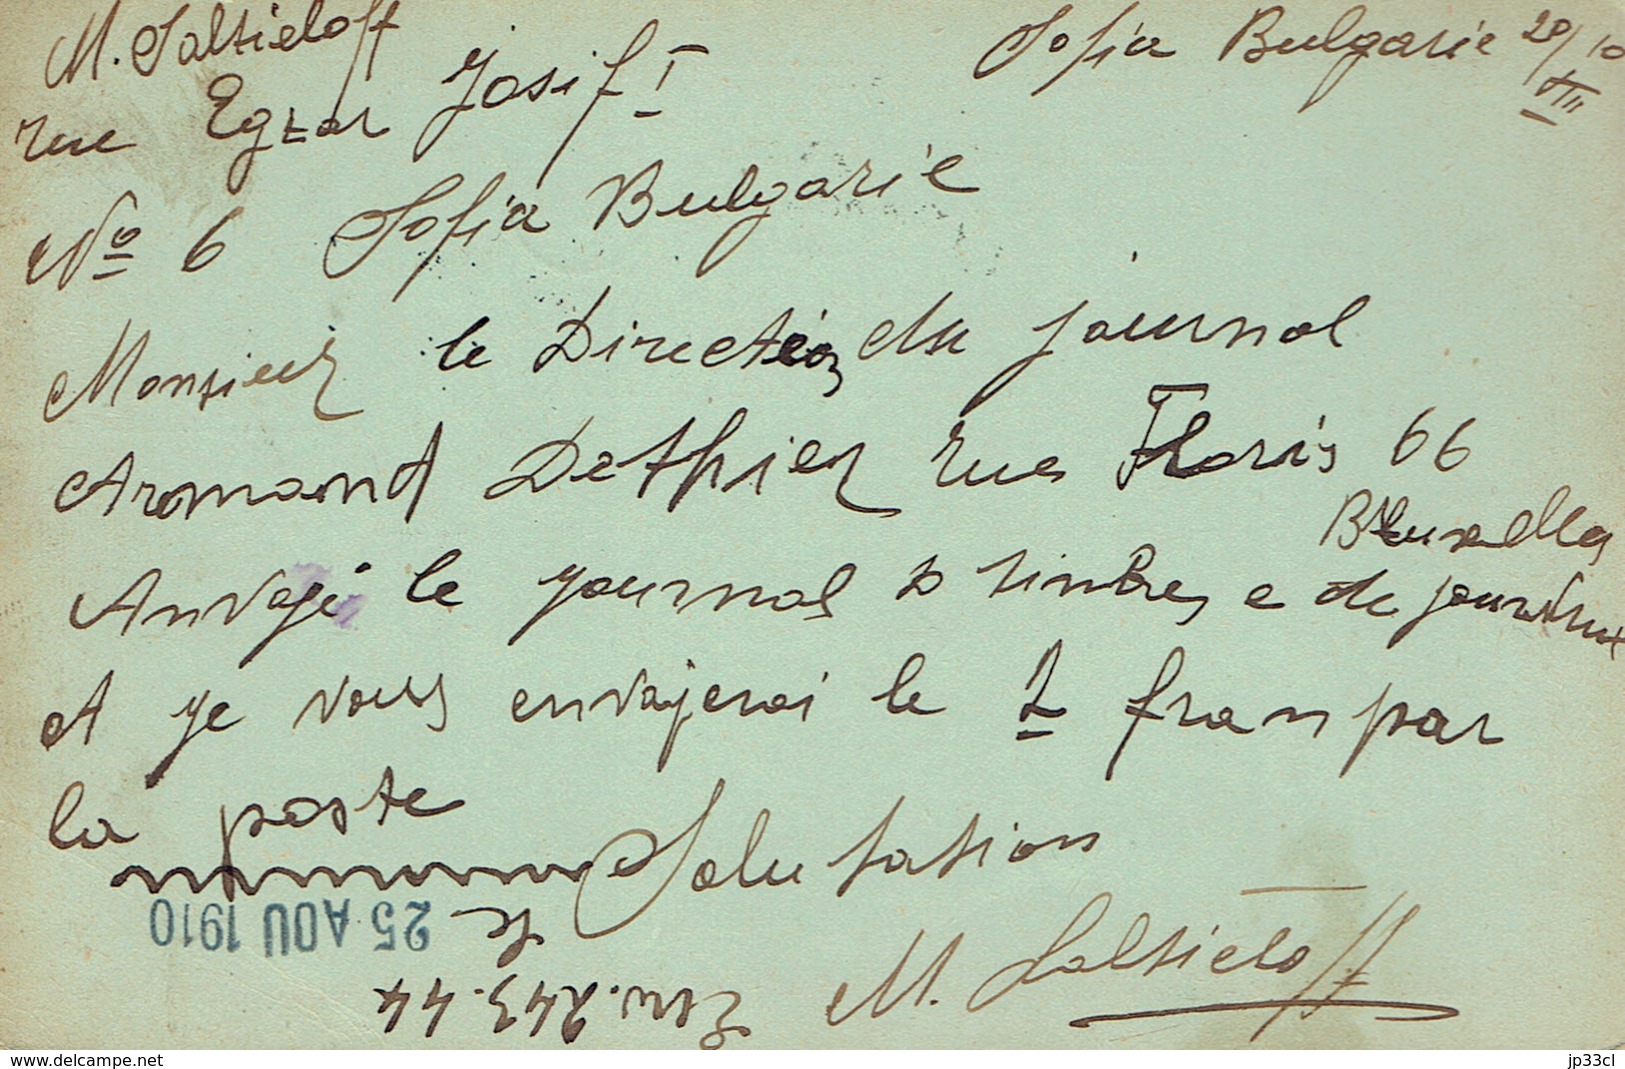 M. Saltieloff
Sofia Bulgarie 20/VIII 10
rue Egzar Josif I
No 6 Sofia Bulgarie
Monsieur le Directeor du journal
Armand Dethier rue Floris 66
Bruxelles
Anvoje le journal timbres e de
A je vous envajerai le 1 fran par
la poste
Salutation
25 AOU 1910
le
243.44
M. Saltieloff
www.delcampe.net
jp33cl